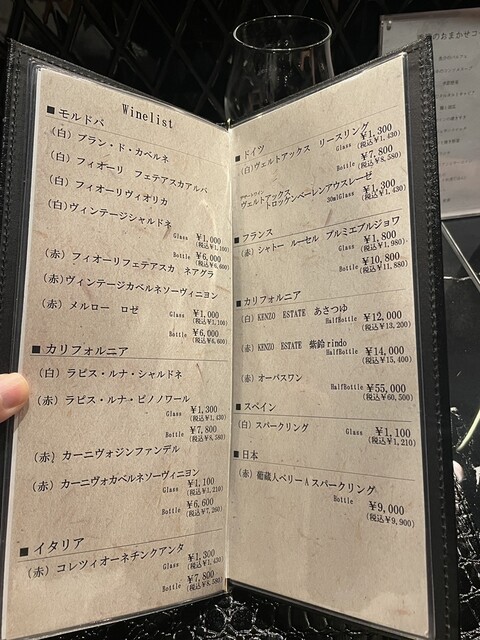 Winelist
■ モルドバ
(白) ブラン・ド・カベルネ
(白) フィオーリ フェテアスカアルバ
(白) フィオーリヴィオリカ
(白)ヴィンテージシャルドネ
Glass ¥1,000
(税込¥1,100)
Bottle ¥6,000
(税込¥6,600)
(赤) フィオーリフェテアスカ ネアグラ
(赤)ヴィンテージカベルネソーヴィニヨン
(赤) メルロー ロゼ
Glass ¥1,000
(税込¥1,100)
Bottle ¥6,000
(税込¥6,600)
■ カリフォルニア
(白) ラピス・ルナ・シャルドネ
(赤) ラピス・ルナ・ピノノワール
Glass ¥1,300
(税込¥1,430)
Bottle ¥7,800
(税込¥8,580)
(赤) カーニヴォジンファンデル
(赤) カーニヴォカベルネソーヴィニヨン
Glass ¥1,100
(税込¥1,210)
Bottle ¥6,600
(税込¥7,260)
■ イタリア
(赤) コレツィオーネチンクアンタ
Glass ¥1,300
(税込¥1,430)
Bottle ¥7,800
(税込¥8,580)
■ ドイツ
(白)ヴェルトアックス リースリング
Glass ¥1,300
(税込¥1,430)
Bottle ¥7,800
(税込¥8,580)
デザートワイン
ヴェルトアックス
トロッケンベーレンアウスレーゼ
30mlGlass ¥1,300
(税込¥1,430)
■ フランス
(赤) シャトー ルーセル プルミエブルジョワ
Glass ¥1,800
(税込¥1,980)
Bottle ¥10,800
(税込¥11,880)
■ カリフォルニア
(白) KENZO ESTATE あさつゆ
HalfBottle ¥12,000
(税込¥13,200)
(赤) KENZO ESTATE 紫鈴rindo
HalfBottle ¥14,000
(税込¥15,400)
(赤) オーパスワン
HalfBottle ¥55,000
(税込¥60,500)
■ スペイン
(白) スパークリング
Glass ¥1,100
(税込¥1,210)
■ 日本
(赤) 葡蔵人ベリーAスパークリング
Bottle ¥9,000
(税込¥9,900)
のおまかせコ